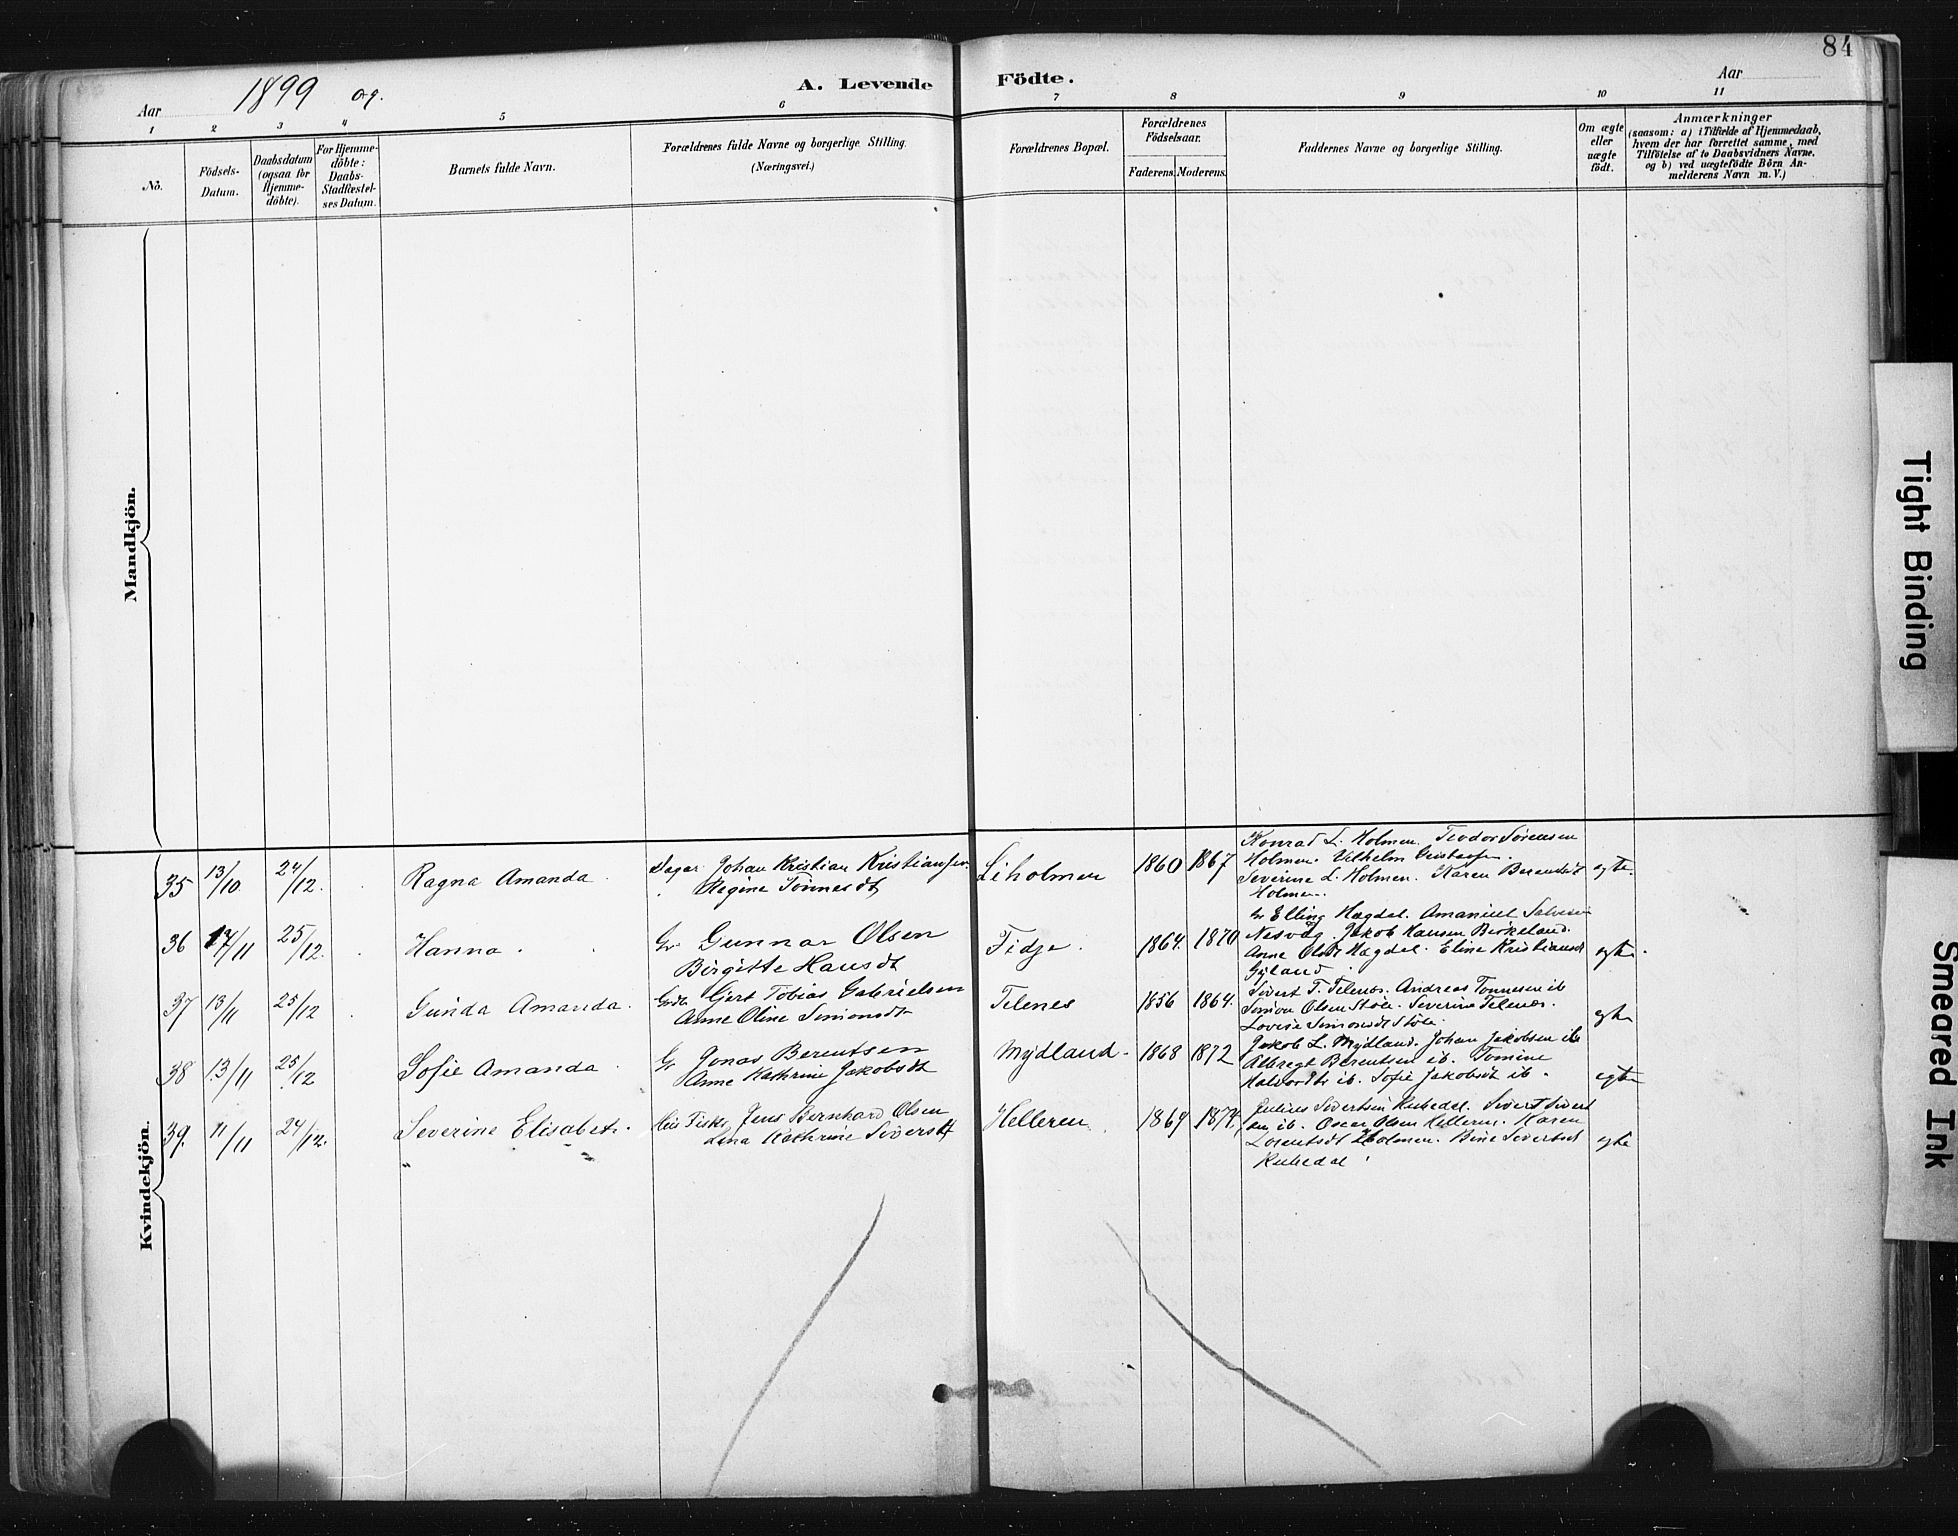 84
Aar 1899 og.
A. Levende Födte.
Aar
1 2 3 4 5 6 7 8 9 10 11
No.
Födsels-
Datum.
Daabsdatum
(ogsaa for
Hjemme-
döbte).
For Hjemme-
döbte:
Daabs-
Stadfæstel-
ses Datum.
Barnets fulde Navn.
Forældrenes fulde Navne og borgerlige Stilling.
(Næringsvei.)
Forældrenes Bopæl.
Forældrenes
Födselsaar.
Faderens. Moderens.
Faddernes Navne og borgerlige Stilling.
Om ægte
eller
uægte
födt.
Anmærkninger
(saasom: a) i Tilfælde af Hjemmedaab,
hvem der har forrettet samme, med
Tilföielse af to Daabsvidners Navne,
og b) ved uægtefödte Börn An-
melderens Navn m. V.)
Mandkjön.
Kvindekjön.
35 13/10. 24/12. Ragna Amanda. Johan Kristian Kristiansen
Regine Tönnesdt
Liholmen 1860 1867
Konrad L. Holmen. Teodor Sörensen
Holmen. Vilhelm
Severine L. Holmen. Karen Berentsdt
Holmen.
egte.
36 17/11 25/12. Hanna. Gr. Gunnar Olsen
Birgitte Hansdt
Fidje. 1864. 1870
Gr Elling Hægdal. Amanuel Salvesen
Nesvåg. Jakob Hansen Birkeland.
Anne Olsdt Hægdal. Eline Kristiansdt
Gyland.
egte.
37 13/11 25/12 Gunda Amanda. Gjert Tobias Gabrielsen
Anne Oline Simonsdt
Telenes 1856 1864.
Sivert T. Telenes. Andreas Tönnesen ib
Simon Olsen Stöle. Severine Telenes.
Lovise Simonsdt Stöle.
egte
38 13/11 25/12 Sofie Amanda. Gr Jonas Berentsen
Anne Kathrine Jakobsdt
Mydland. 1868 1872
Jakob L. Mydland. Johan Jakobsen ib
Albregt Berentsen ib. Tomine
ib. Sofie Jakobsdt ib.
egte
39. 11/11 24/12. Severine Elisabet. Fisker Jens Bernhard Olsen
Lina Kathrine Siversdt
Helleren 1864 1874,
Julius Sivertsen Rekedal. Sivert Sivert
sen ib. Oscar Olsen Helleren. Karen
Lorentsdt Holmen. Bine Sivertsdt
Rekedal.
egte
Tight Binding
Smeared Ink